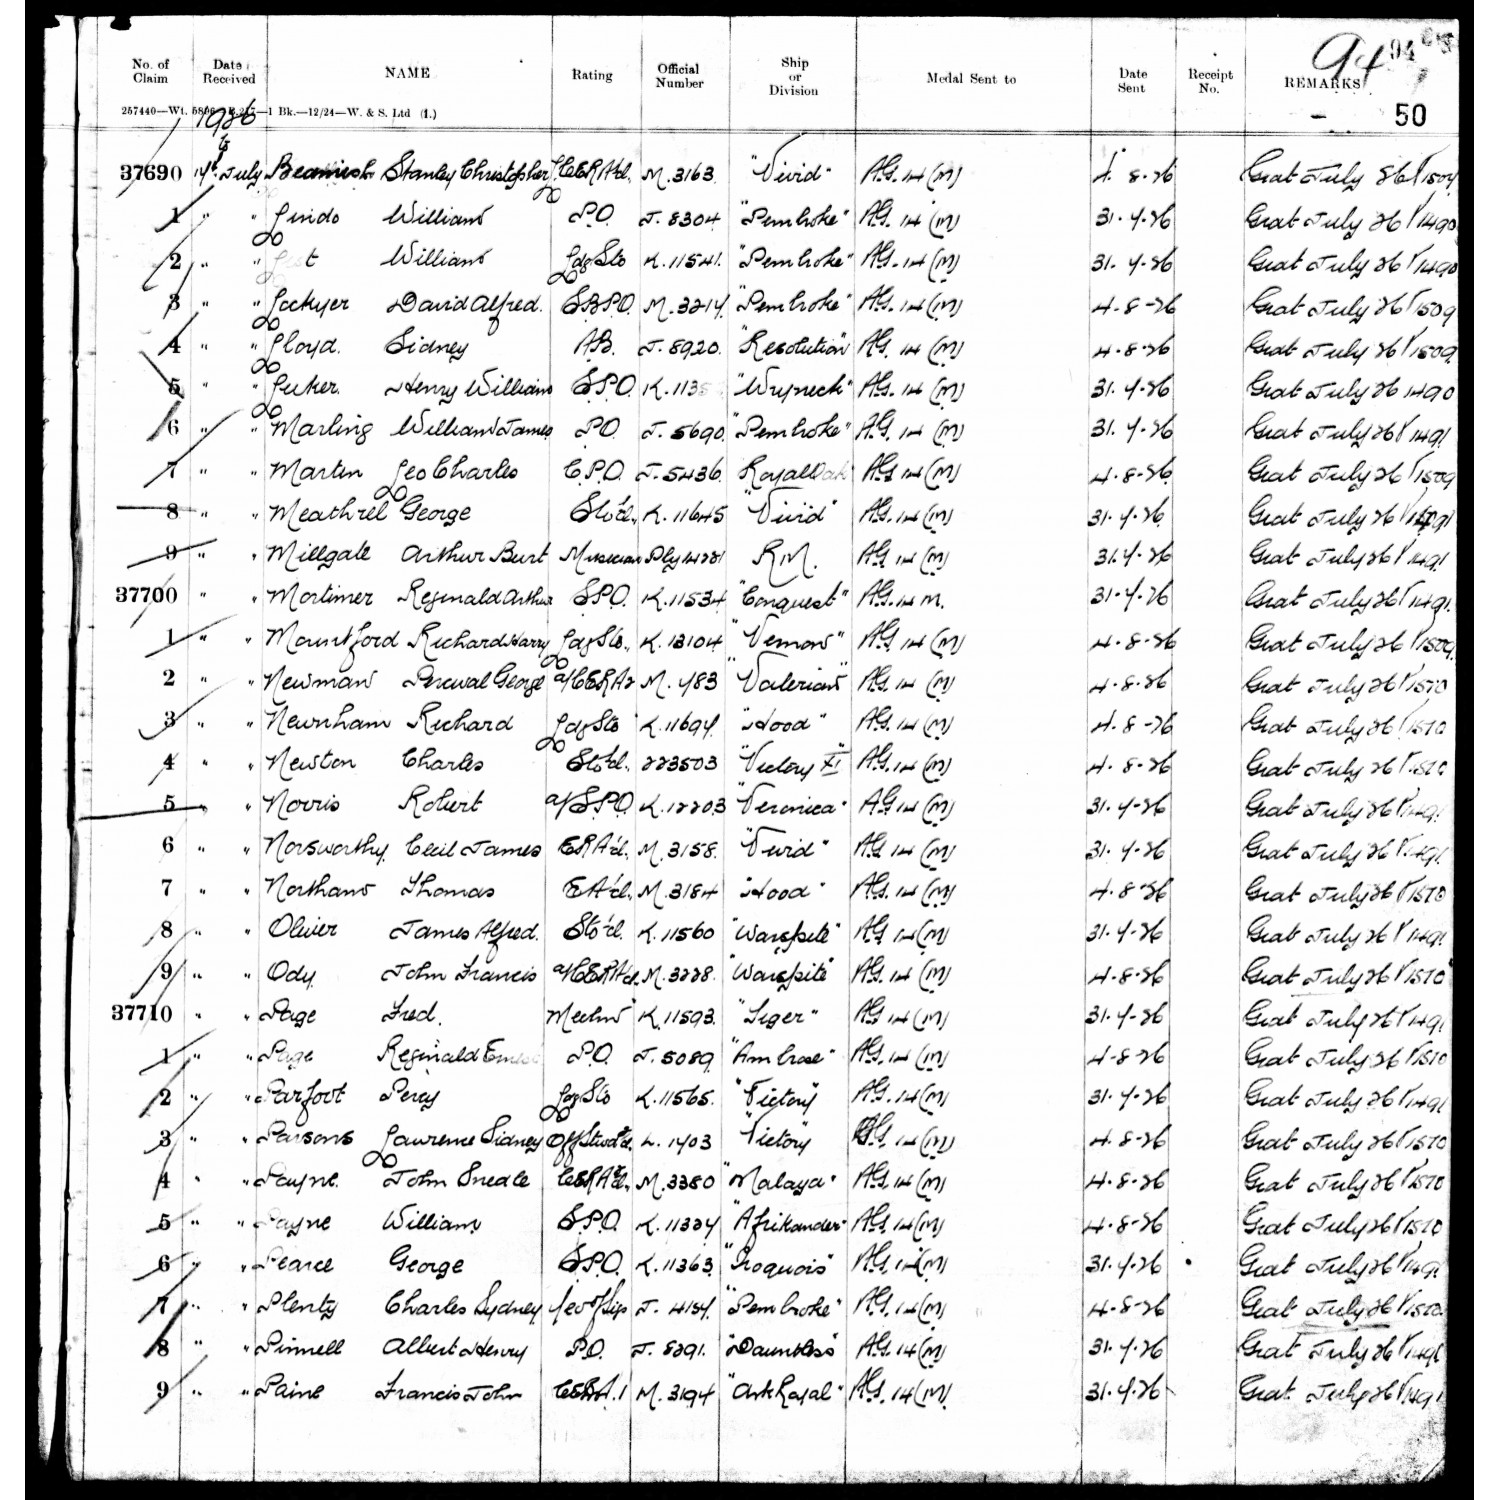 94 94
No. of Claim Date Received NAME Rating Official Number Ship or Division Medal Sent to Date Sent Receipt No. REMARKS
50
257440—Wt. —1 Bk.—12/24—W. & S. Ltd (1.)
1926
37690 July Beamish Stanley Christopher M.3163 "Vivid" A.G. 14 (M) 4. 8.26 Grat July 26 1509
1 " " Lindo William P.O. J.8304 "Pembroke" A.G. 14 (M) 31.7.26 Grat July 26 1490
2 " " William Ldg Sto K.11541. "Pembroke" A.G. 14 (M) 31.7.26 Grat July 26 1490
3 " " Lockyer David Alfred. S.B.P.O. M.3217 "Pembroke" A.G. 14 (M) 4.8-26 Grat July 26 1509
4 " " Lloyd. Sidney A.B. J.8920. "Resolution" A.G. 14 (M) 4.8.26 Grat July 26 1509
5 " " Luker. Henry William S.P.O. K. "Wryneck" A.G. 14 (M) 31.7.26 Grat July 26 1490
6 " " Marling William James P.O. J.5690. "Pembroke" A.G. 14 (M) 31.7.26 Grat July 26 1491
7 " " Martin Leo Charles C.P.O. J.5436. Royal Oak A.G. 14 (M) 4.8.26 Grat July 26 1509
8 " " Meathrel George K.11645 "Vivid" A.G. 14 (M) 31.7.26 Grat July 26 1491
9 " " Millgate Arthur Burt Musician Ply R.M. A.G. 14 (M) 31.7.26 Grat July 26 1491
37700 " " Mortimer Reginald Arthur S.P.O. K.11534 "Conquest" A.G. 14 M. 31.7.26 Grat July 26 1491.
1 " " Mountford Richard Harry Ldg Sto. K.13104 "Vernon" A.G. 14 (M) 4.8.26 Grat July 26 1509.
2 " " Newman Percival George M.783 "Valerian" A.G. 14 (M) 4.8.26 Grat July 26 1510
3 " " Newnham Richard Ldg Sto K.11697. "Hood" A.G. 14 (M) 4.8-26 Grat July 26 1510
4 " " Newton Charles 223503 "Victory XI" A.G. 14 (M) 4.8.26 Grat July 26 1510
5 " " Norris Robert a/S.P.O. K.12203 "Veronica" A.G. 14 (M) 31.7.26 Grat July 26 1491
6 " " Norsworthy. Cecil James M.3158. "Vivid" A.G. 14 (M) 31.7.26 Grat July 26 1491
7 " " Northam Thomas M.3184 "Hood" A.G. 14 (M) 4.8.26 Grat July 26 1510
8 " " Oliver James Alfred. K.11560 "Warspite" A.G. 14 (M) 31.7.26 Grat July 26 1491
9 " " Ody. John Francis M.3228. "Warspite" A.G. 14 (M) 4.8.26 Grat July 26 1510
37710 " " Page Fred. Mechn K.11593. "Tiger" A.G. 14 (M) 31.7.26 Grat July 26 1491
1 " " Page Reginald Ernest P.O. J.5089. "Ambrose" A.G. 14 (M) 4.8.26 Grat July 26 1510
2 " " Parfoot Percy Ldg Sto K.11565. "Victory" A.G. 14 (M) 31.7.26 Grat July 26 1491
3 " " Parsons Lawrence Sidney L.1703 "Victory" A.G. 14 (M) 4.8.26 Grat July 26 1510
4 " " Payne. John Snedle M.3380 "Malaya" A.G. 14 (M) 4.8.26 Grat July 26 1510
5 " " Payne William S.P.O. K.11327 "Afrikander" A.G. 14 (M) 4.8.26 Grat July 26 1510
6 " " Pearce George S.P.O. K.11363. "Iroquois" A.G. 14 (M) 31.7.26 Grat July 26 1491
7 " " Plenty Charles Sydney Yeo of Sigs J. "Pembroke" A.G. 14 (M) 4.8.26 Grat July 26 1510
8 " " Pinnell Albert Henry P.O. J.8291. "Dauntless" A.G. 14 (M) 31.7.26 Grat July 26 1491
9 " " Paine Francis John M.3194 "Ark Royal" A.G. 14 (M) 31.7.26 Grat. July 26 1491